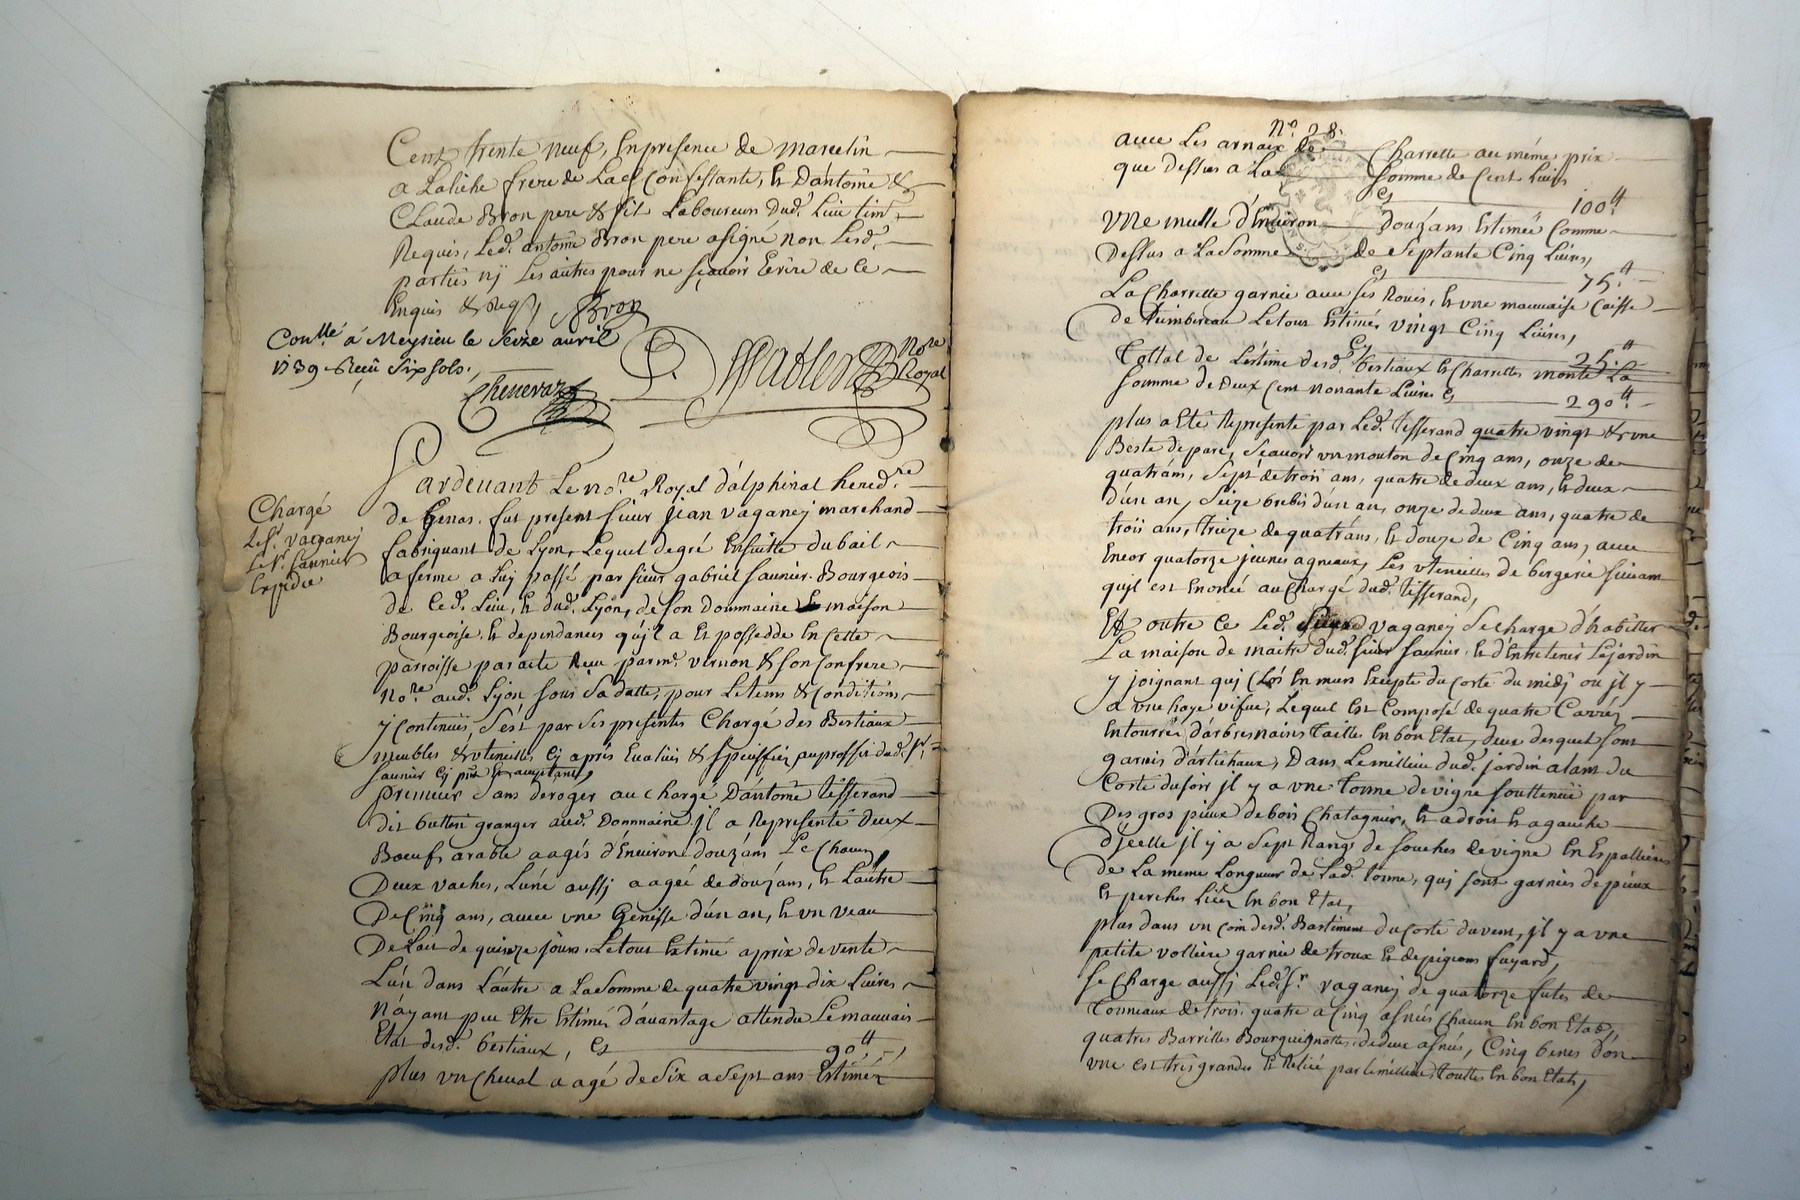 Cent trente neuf, En presence de marcelin
a Laliche frere de Lad. Confessante, & D'antoine &
Claude Bron pere & fils Laboureurs dud. Lieu tint
Requis, Led. antoine Bron pere a signé non Lesd.
parties nÿ Les autres pour ne sçavoir Ecrire de Ce
Enquis & Req. Bron
Con.llé à Meysieu le Seize avril
1739 Reçû Six sols.
Chenevaz
No.re Royal
Pardevant Le no.re Royal dalphinal hered.re
de Genas. fut present sieur Jean vaganeÿ marchand
Chargé
Le Sr. vaganeÿ
Le Sr. Saunier
Expediée
fabriquant de Lyon, Lequel de gré Ensuitte du bail
a ferme a Luÿ passé par sieur gabriel Saunier Bourgeois
de Ced. Lieu, & dud. Lyon, de son Dommaine & maison
Bourgeoise, & dependances qu'il a Et possedde En Cette
parroisse par acte Reçu par me. vernon & son Confrere
No.re aud. Lyon sous Sa datte, pour Le tems & Conditions
y Contenües, s'est par Ses presentes Chargé des Bestiaux
meubles & utencilles Cÿ après Evalués & Speciffiez au proffit dud. Sr.
Saunier Cÿ pnt. & acceptant,
premier Sans deroger au chargé D'antoine tisserand
dit button granger aud. Dommaine. Jl a Representé deux
Boeufs arable aagés d'Environ douz'ans Le Chacun,
Deux vaches, L'une aussÿ aagée de douz'ans, & L'autre
De Cinq ans, avec une Genisse d'un an, & un veau
De Lait de quinze jours. Le tout Estimé a prix de vente
L'un dans L'autre a La Somme de quatre vingt dix Livres
N'ayant peu Etre Estimés d'avantage attendu Le mauvais
Etat desd. bestiaux, Cÿ 90 ₶
plus un Cheval aagé de Six a Sept ans Estimé
N.o 28.
avec Les arnaix de Charrette au méme prix
que dessus a La Somme de Cent Livres
Cÿ 100 ₶
Une mulle d'Environ Douz'ans Estimée Comme
Dessus a La Somme de Septante Cinq Livres,
Cÿ 75 ₶
La Charrette garnie avec Ses Roues, & une mauvaise Caisse
de tumbereau Le tout Estimé vingt Cinq Livres,
Cÿ 25 ₶
Tottal de L'estime desd. bestiaux & Charrettes monte La
Somme de Deux Cent nonante Livres Cÿ 290 ₶
plus a Eté Representé par Led. tisserand quatre vingt & une
Beste de parc, Sçavoir un mouton de Cinq ans, onze de
quatr'ans, Sept de trois ans, quatre de deux ans, & deux
d'un an, Seize brebis d'un an, onze de deux ans, quatre de
trois ans, treize de quatr'ans, & douze de Cinq ans, avec
Encor quatorze jeunes agneaux, Les utencilles de bergerie suivant
qu'il est Enoncé au Chargé dud. tisserand,
Et outre Ce Led. Sieur vaganeÿ Se charge d'habitter
La maison de maitre dud. sieur Saunier, & d'Entretenir Le jardin
y joignant qui Clos En murs Excepté du Cotté du midÿ ou jl y
a une haye vifve, Lequel Est Composé de quatre Carrés
Entourrés d'arbres naïns Taillés En bon Etat, deux desquels sont
garnis d'artichaux, Dans Le millieu dud. jardin alant du
Cotté du soir jl y a une Tonne de vigne souttenüe par
Des gros pieux de bois Chatagnier, & a droit & a gauche
d'jcelle jl y a Sept Rangs de souches de vigne En Espalliers
de La meme Longueur de Lad. tonne, qui sont garnies de pieux
Et perches Liés En bon Etat,
plus dans un Coin desd. Bastiments du Cotté du vent, jl y a une
petite volliere garnie de troux Et de pigeons fuyard,
Se Charge aussÿ Led. Sr. vaganeÿ de quatorze futes de
Tonneaux de trois quatre a Cinq asnées Chacun En bon Etat,
quatres Barrilles Bourguignottes de deux asnées, Cinq benes d'on
une est très grandes & Reliée par Le millieu, touttes En bon Etat,